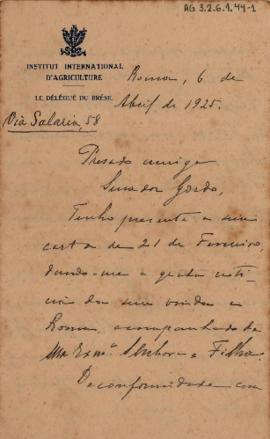 AG 3.2.6.1.44-1
INSTITUT INTERNATIONAL
D'AGRICULTURE
LE DÉLÉGUÉ DU BRÉSIL
Via Salaria, 58
Roma, 6 de
Abril de 1925.
Presado amigo
Senador Gordo,
Tenho presente a sua
carta de 21 de Fevereiro,
dando-me a grata noti-
cia da sua vinda a
Roma, acompanhado da
Sua Exmª. Senhora e Filha.
De conformidade com